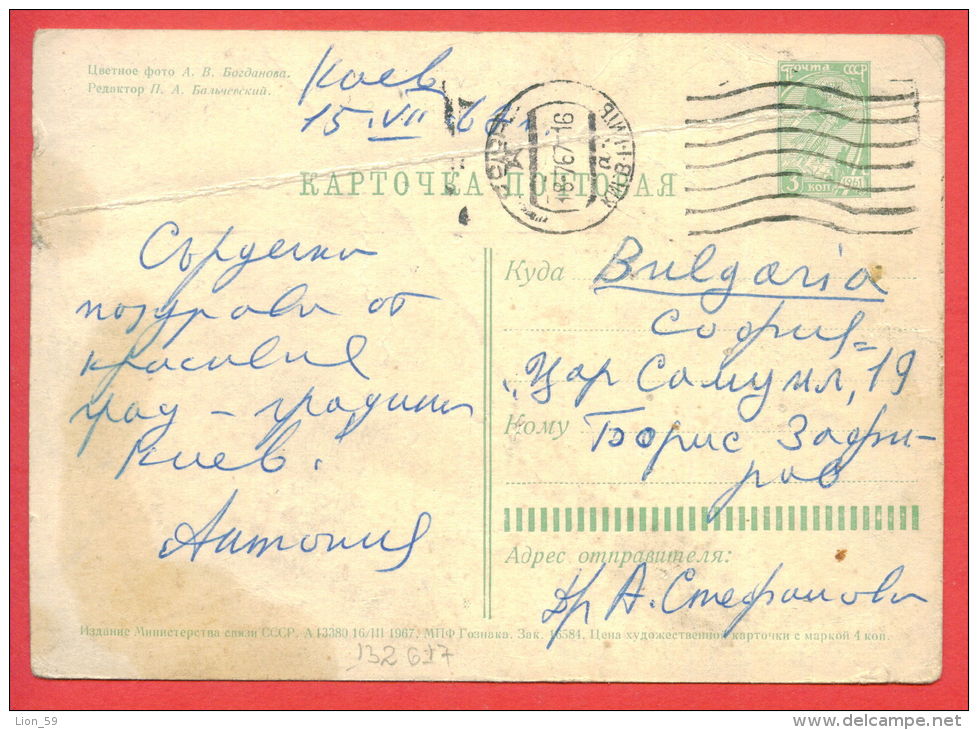 Цветное фото А. В. Богданова.
Редактор П. А. Бальчевский.
Киев
15.VII 67 г.
ПОЧТА СССР
3 КОП
1961
18-7 67-16
КАРТОЧКА ПОЧТОВАЯ
Сърдечни
поздрави от
красивия
град - градина
Киев.
Антония
Куда Bulgaria
София
"Цар Самуил, 19
Кому Борис Зафи-
ров
Адрес отправителя:
Др А. Стефанова
Издание Министерства связи СССР. А 13380 16/III 1967. МПФ Гознака. Зак. 16584. Цена художественной карточки с маркой 4 коп.
132617
Lion_59
delcampe.net